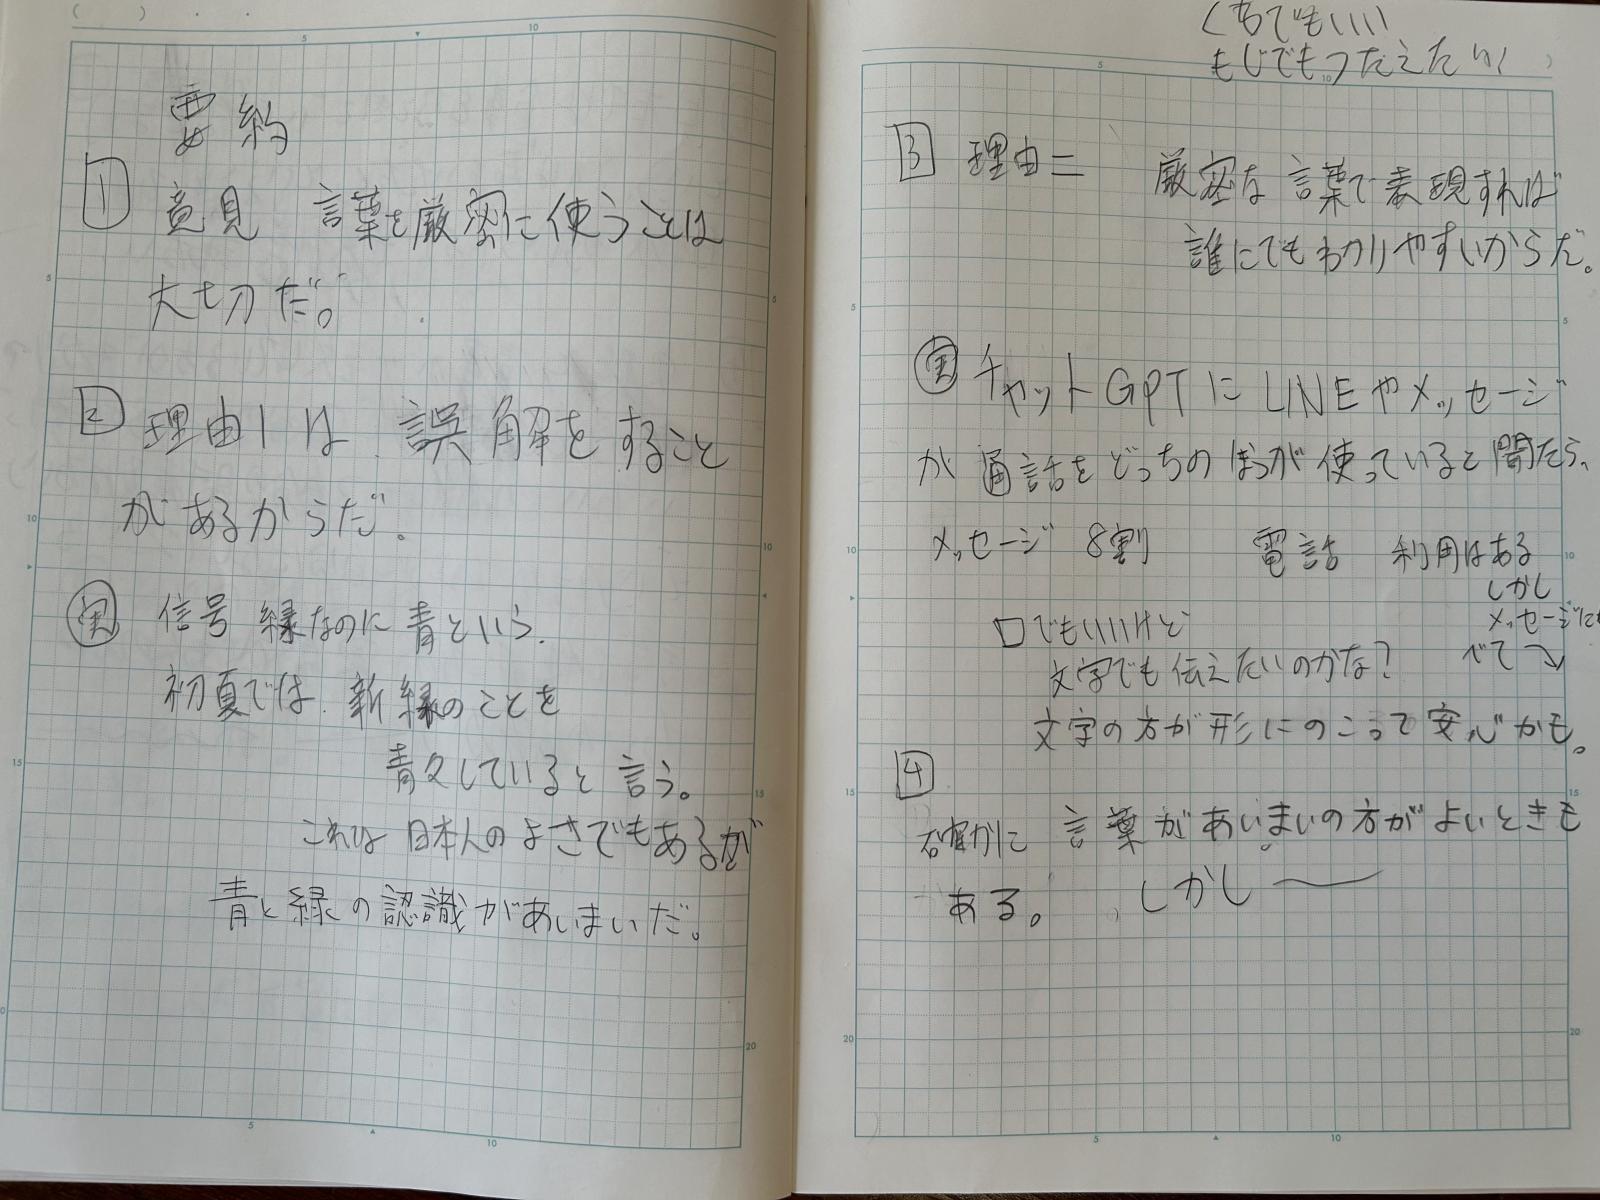 要約
1 意見 言葉を厳密に使うことは
大切だ。
2 理由1は 誤解をすること
があるからだ。
実 信号 緑なのに青という。
初夏では 新緑のことを
青々していると言う。
これは 日本人のよさでもあるが
青と緑の認識があいまいだ。
くちでもいい
もじでもつたえたい
3 理由二 厳密な言葉で表現すれば
誰にでもわかりやすいからだ。
実 チャットGPTにLINEやメッセージ
が通話をどっちのほうが使っていると聞たら、
メッセージ 8割 電話 利用はある
しかし
メッセージに
べて
口でもいいけど
文字でも伝えたいのかな?
文字の方が形にのこって安心かも。
4
確かに 言葉があいまいの方がよいときも
ある。 しかし